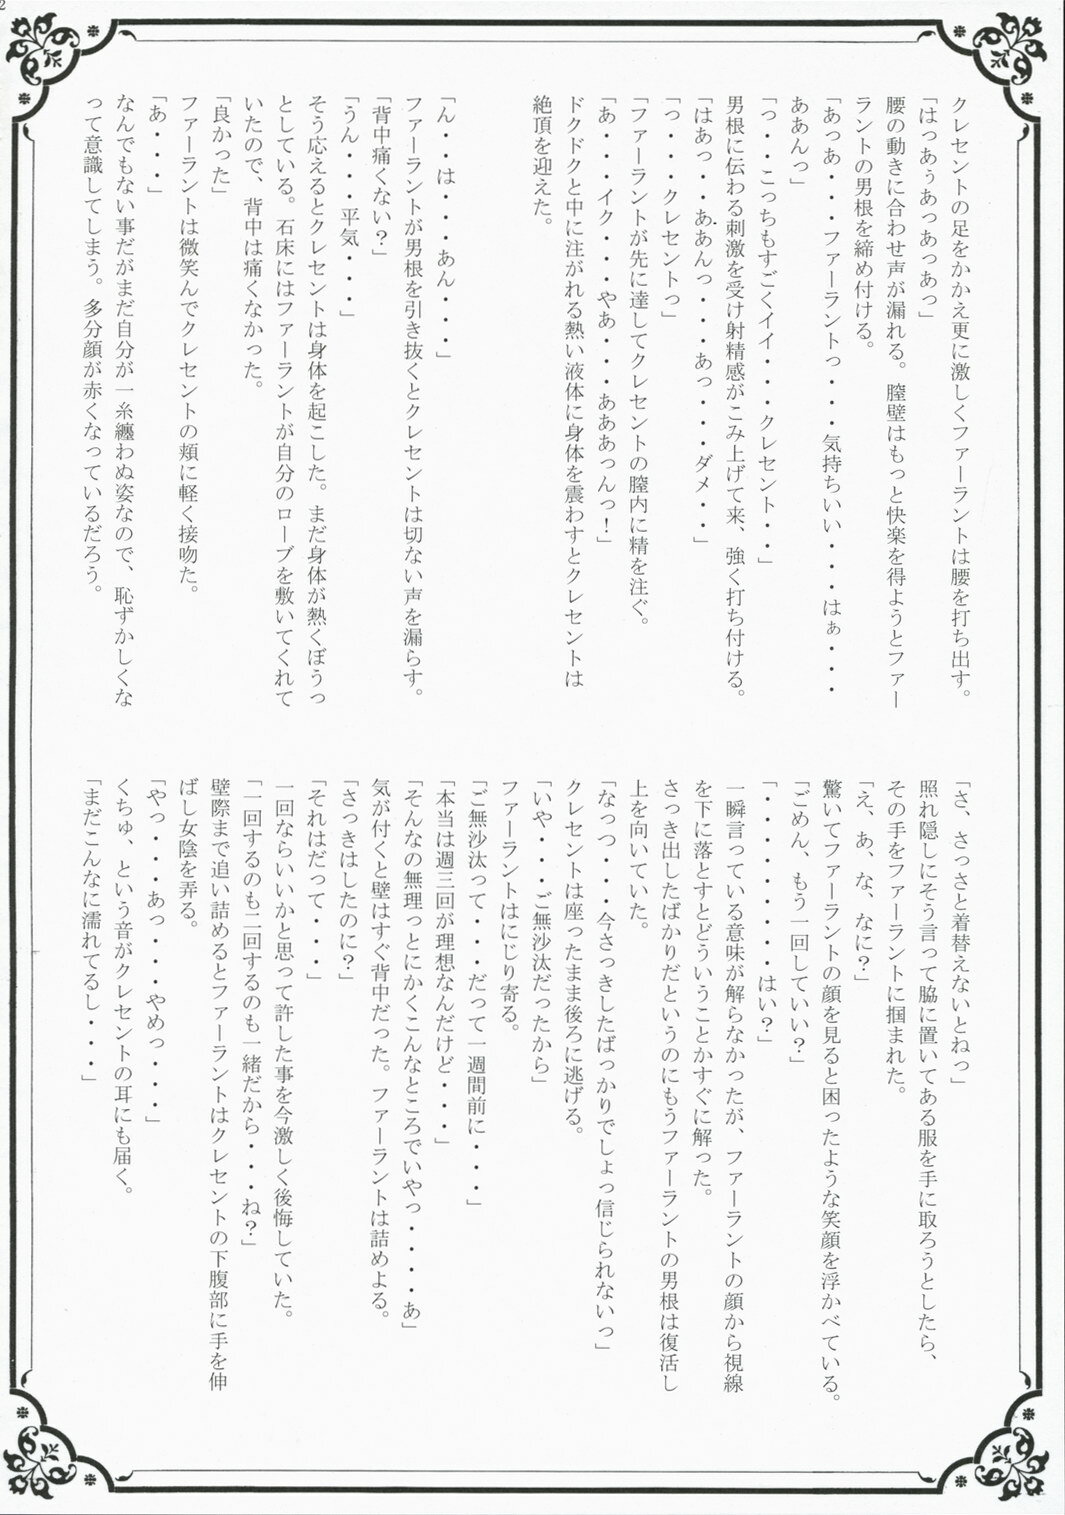 クレセントの足をかかえ更に激しくファーラントは腰を打ち出す。
「はっあぅあっあっあっ」
腰の動きに合わせ声が漏れる。膣壁はもっと快楽を得ようとファー
ラントの男根を締め付ける。
「あっあ・・・ファーラントっ・・・気持ちいい・・・はぁ・・・
ああんっ」
「っ・・こっちもすごくイイ・・・クレセント・・」
男根に伝わる刺激を受け射精感がこみ上げて来、強く打ち付ける。
「はあっ・・ああんっ・・・あっ・・・ダメ・・」
「っ・・・クレセントっ」
「ファーラントが先に達してクレセントの膣内に精を注ぐ。
「あ・・・イク・・・やあ・・・あああっんっ！」
ドクドクと中に注がれる熱い液体に身体を震わすとクレセントは
絶頂を迎えた。
「ん・・は・・・あん・・・」
ファーラントが男根を引き抜くとクレセントは切ない声を漏らす。
「背中痛くない？」
「うん・・・平気・・・」
そう応えるとクレセントは身体を起こした。まだ身体が熱くぼうっ
としている。石床にはファーラントが自分のローブを敷いてくれて
いたので、背中は痛くなかった。
「良かった」
ファーラントは微笑んでクレセントの頬に軽く接吻た。
「あ・・・」
なんでもない事だがまだ自分が一糸纏わぬ姿なので、恥ずかしくな
って意識してしまう。多分顔が赤くなっているだろう。
「さ、さっさと着替えないとねっ」
照れ隠しにそう言って脇に置いてある服を手に取ろうとしたら、
その手をファーラントに掴まれた。
「え、あ、な、なに？」
驚いてファーラントの顔を見ると困ったような笑顔を浮かべている。
「ごめん、もう一回していい？」
「・・・・・・・はい？」
一瞬言っている意味が解らなかったが、ファーラントの顔から視線
を下に落とすとどういうことかすぐに解った。
さっき出したばかりだというのにもうファーラントの男根は復活し
上を向いていた。
「なっつ・・・今さっきしたばっかりでしょっ信じられないっ」
クレセントは座ったまま後ろに逃げる。
「いや・・・ご無沙汰だったから」
ファーラントはにじり寄る。
「ご無沙汰って・・・だって一週間前に・・・」
「本当は週三回が理想なんだけど・・・」
「そんなの無理っとにかくこんなところでいやっ・・・・あ」
気が付くと壁はすぐ背中だった。ファーラントは詰めよる。
「さっきはしたのに？」
「それはだって・・・」
一回ならいいかと思って許した事を今激しく後悔していた。
「一回するのも二回するのも一緒だから・・・ね？」
壁際まで追い詰めるとファーラントはクレセントの下腹部に手を伸
ばし女陰を弄る。
「やっ・・・あっ・・・やめっ・・・」
くちゅ、という音がクレセントの耳にも届く。
「まだこんなに濡れてるし・・・」
2